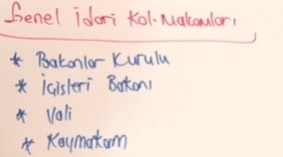 Genel İdari Kol. Makamları
* Bakanlar Kurulu
* İçişleri Bakanı
* Vali
* Kaymakam